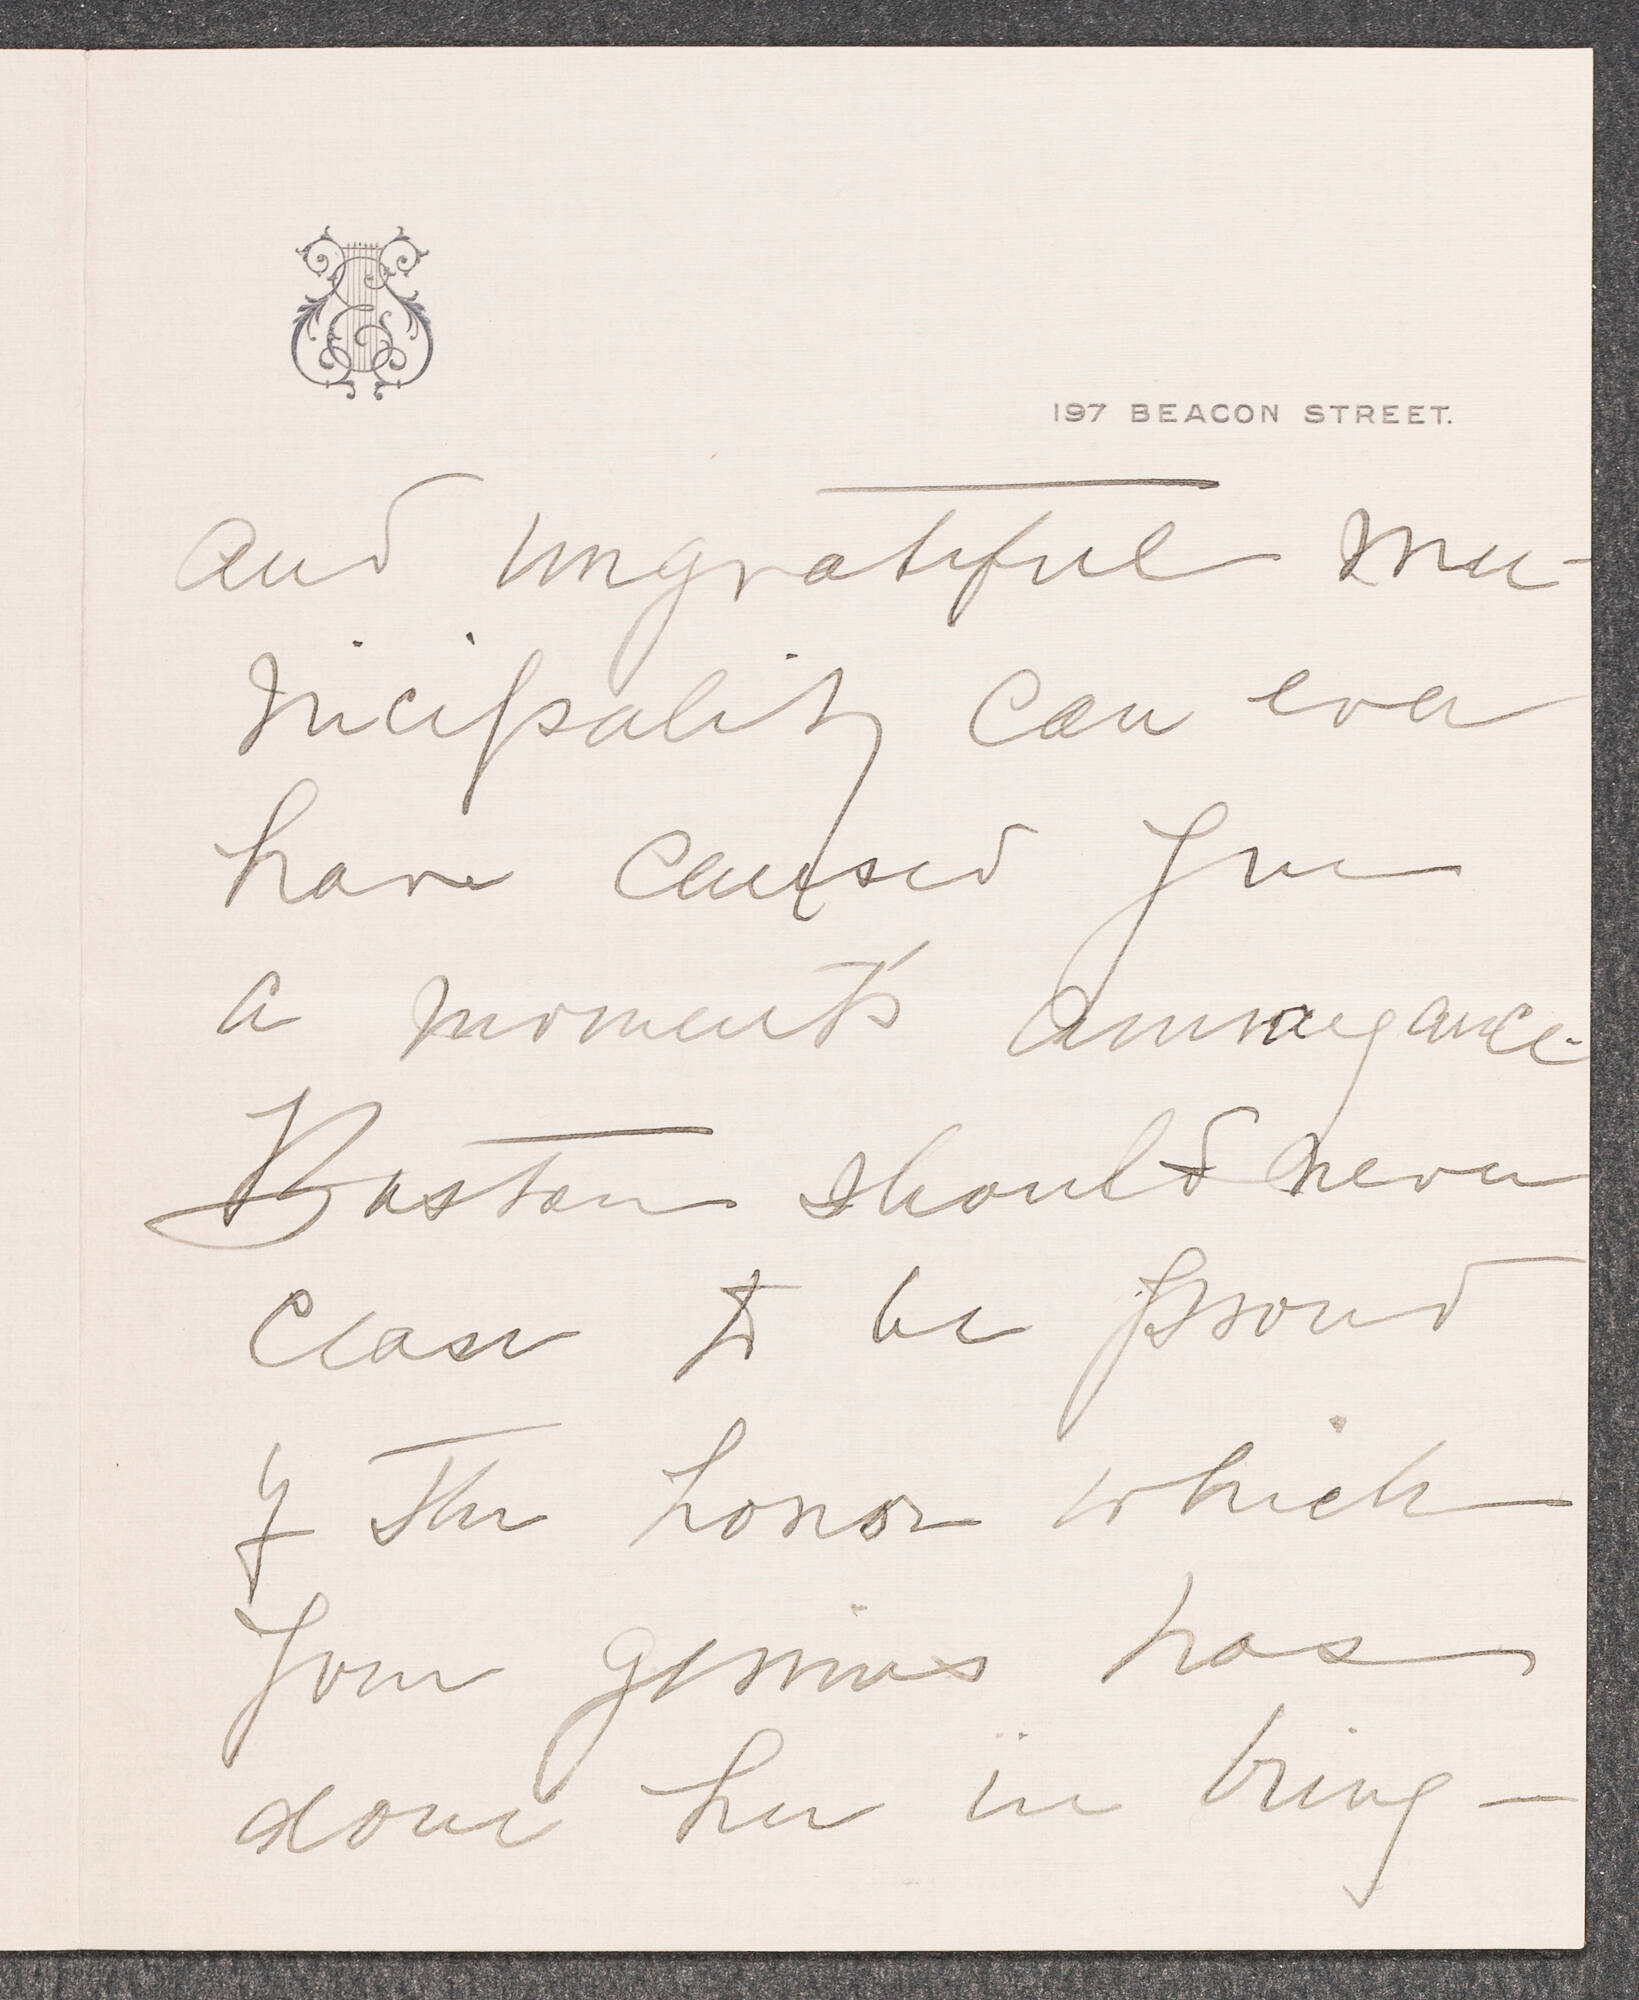 197 BEACON STREET.
and ungrateful mu-
nicipality can ever
have caused you
a moment's annoyance.
Boston should never
cease to be proud
of the honor which
your genius has
done her in bring-